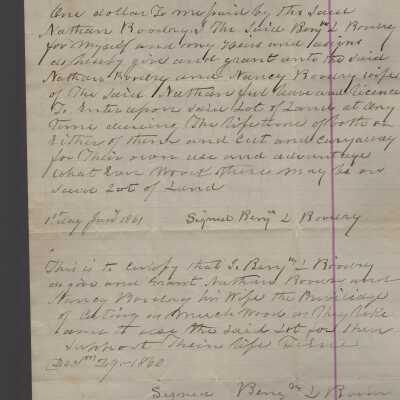 One dollar To me paid by the Said
Nathan Rowdry I The Said Benjn L Rowdry
for Myself and my Heirs and assigns
do hereby give and grant unto the Said
Nathan Rowdry and Nancy Rowdry Wife
of The Said Nathan ful leave and Licence
To Enter upon said Lot of Land at Any
Time during The life time of both or
Either of them and Cut and Carry away
for Their own use and advantage
What Ever Wood there may be on
Said Lot of Land
1st day Jany 1861 Signed Benjn L Rowdry
This is to Certify that I Benjn L Rowdry
do give and Grant Nathan Rowdry and
Nancy Rowdry his Wife the Privilidge
of Cutting as Much Wood as They like
and to use the Said Lot for their
Support Their life Time
Decm 29 - 1860
Signed Benjn L